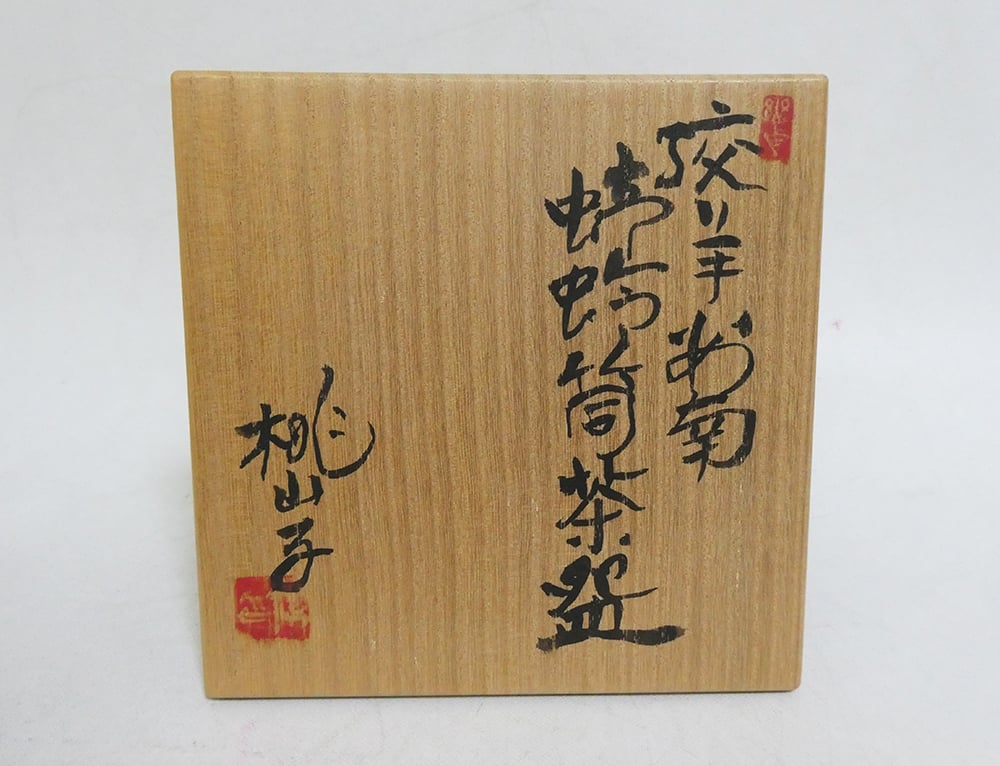 絞り手 野菊
蜻蛉筒茶盌
桃山子